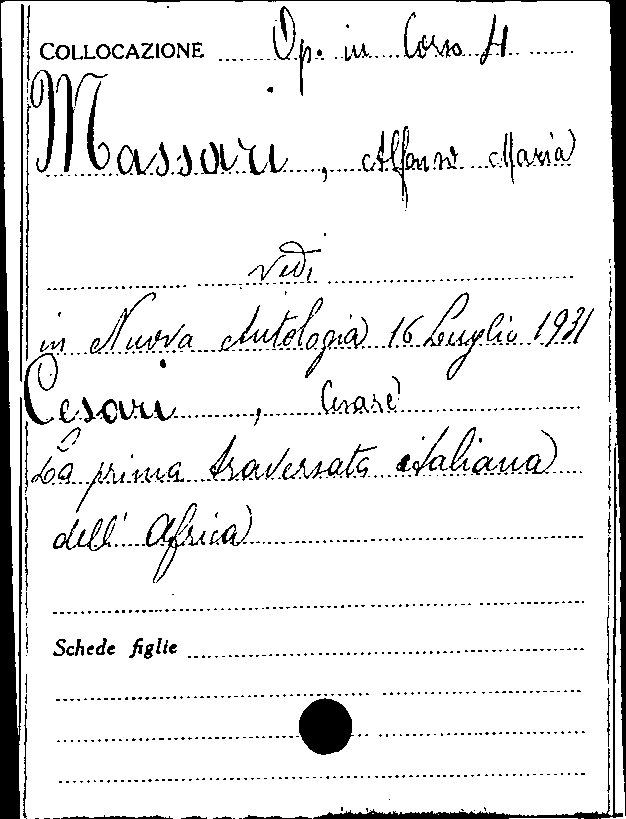 COLLOCAZIONE Op. in Corso 4
Massari, Alfonso Maria
vedi
in Nuova Antologia 16 Luglio 1931
Cesari, Cesare
La prima traversata italiana
dell' Africa
Schede figlie